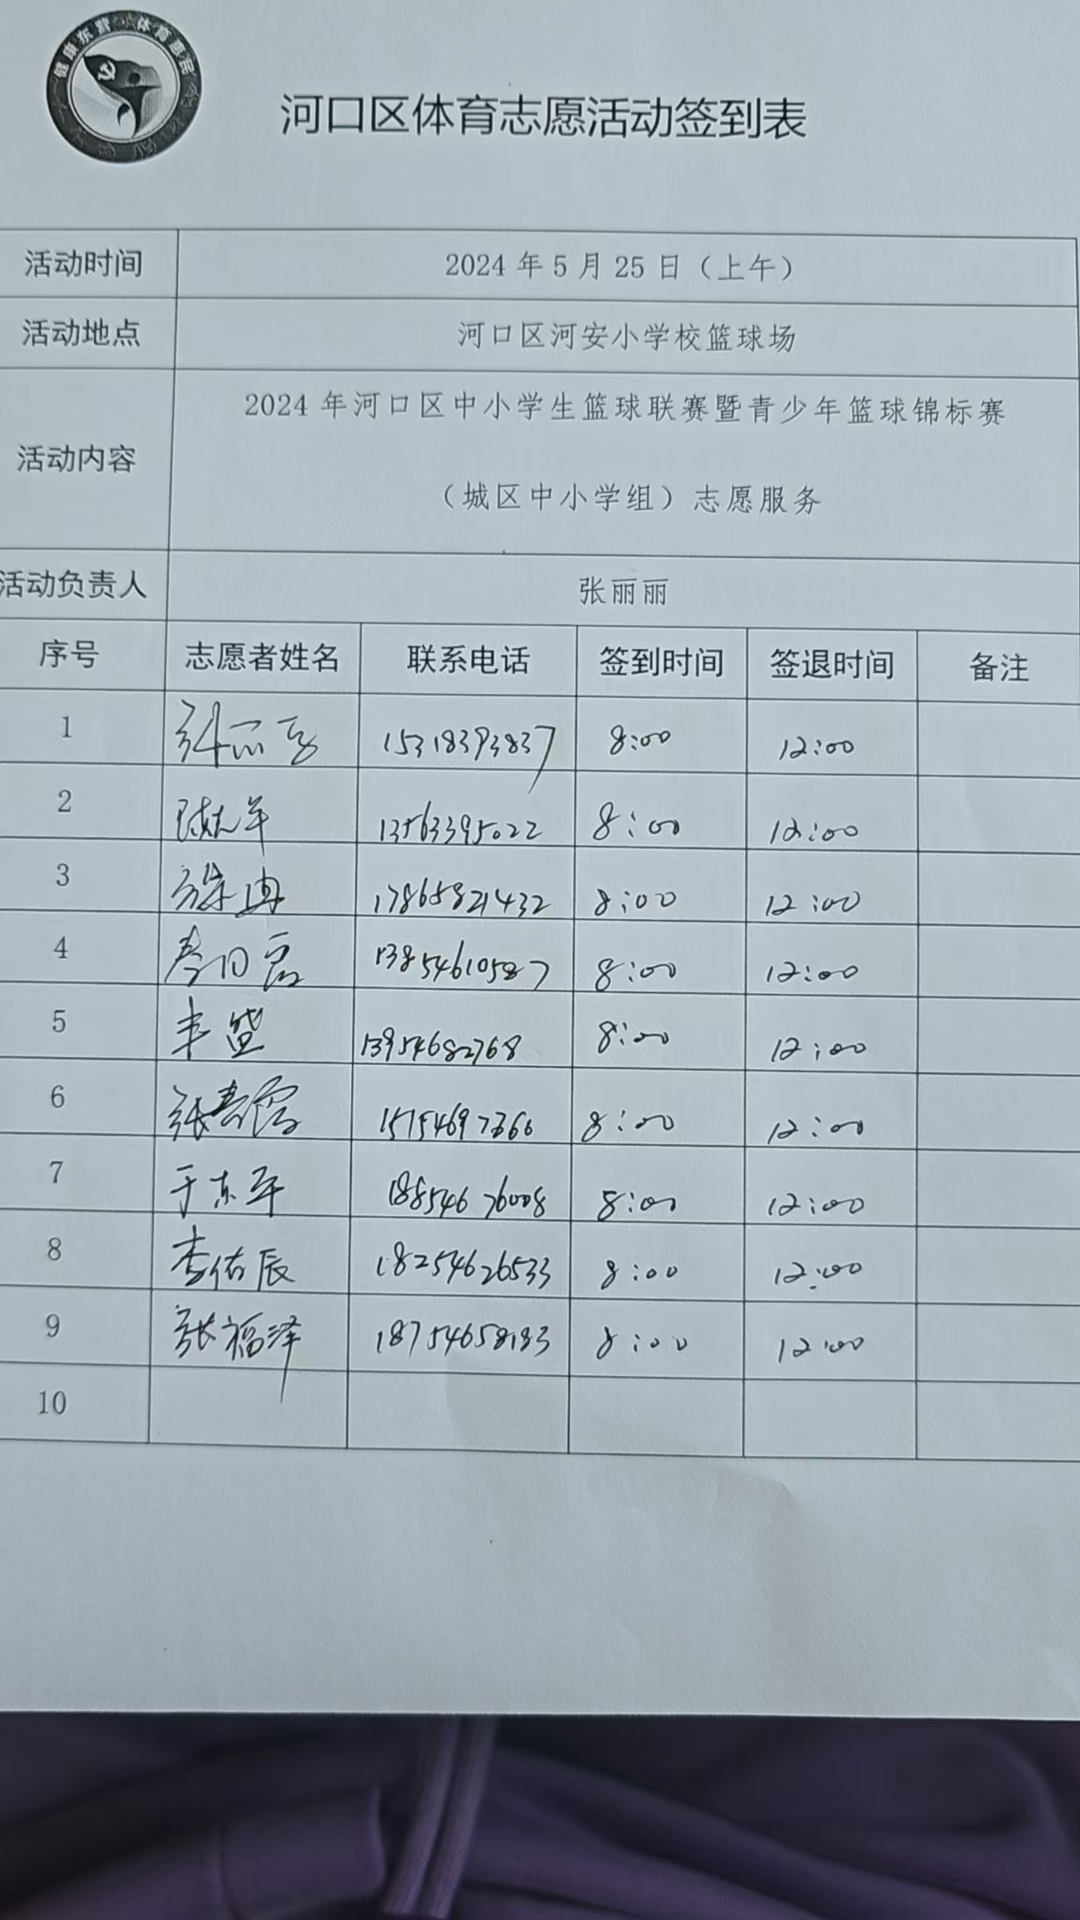 健康东营 体育惠民
河口区体育志愿活动签到表
活动时间 2024年5月25日（上午）
活动地点 河口区河安小学校篮球场
活动内容 2024年河口区中小学生篮球联赛暨青少年篮球锦标赛
（城区中小学组）志愿服务
活动负责人 张丽丽
序号 志愿者姓名 联系电话 签到时间 签退时间 备注
1 15318393837 8:00 12:00
2 13563395022 8:00 12:00
3 徐冉 17865821432 8:00 12:00
4 13854610587 8:00 12:00
5 13954682768 8:00 12:00
6 8:00 12:00
7 于东军 18854676008 8:00 12:00
8 李佑辰 18254626533 8:00 12:00
9 张福泽 18754658183 8:00 12:00
10